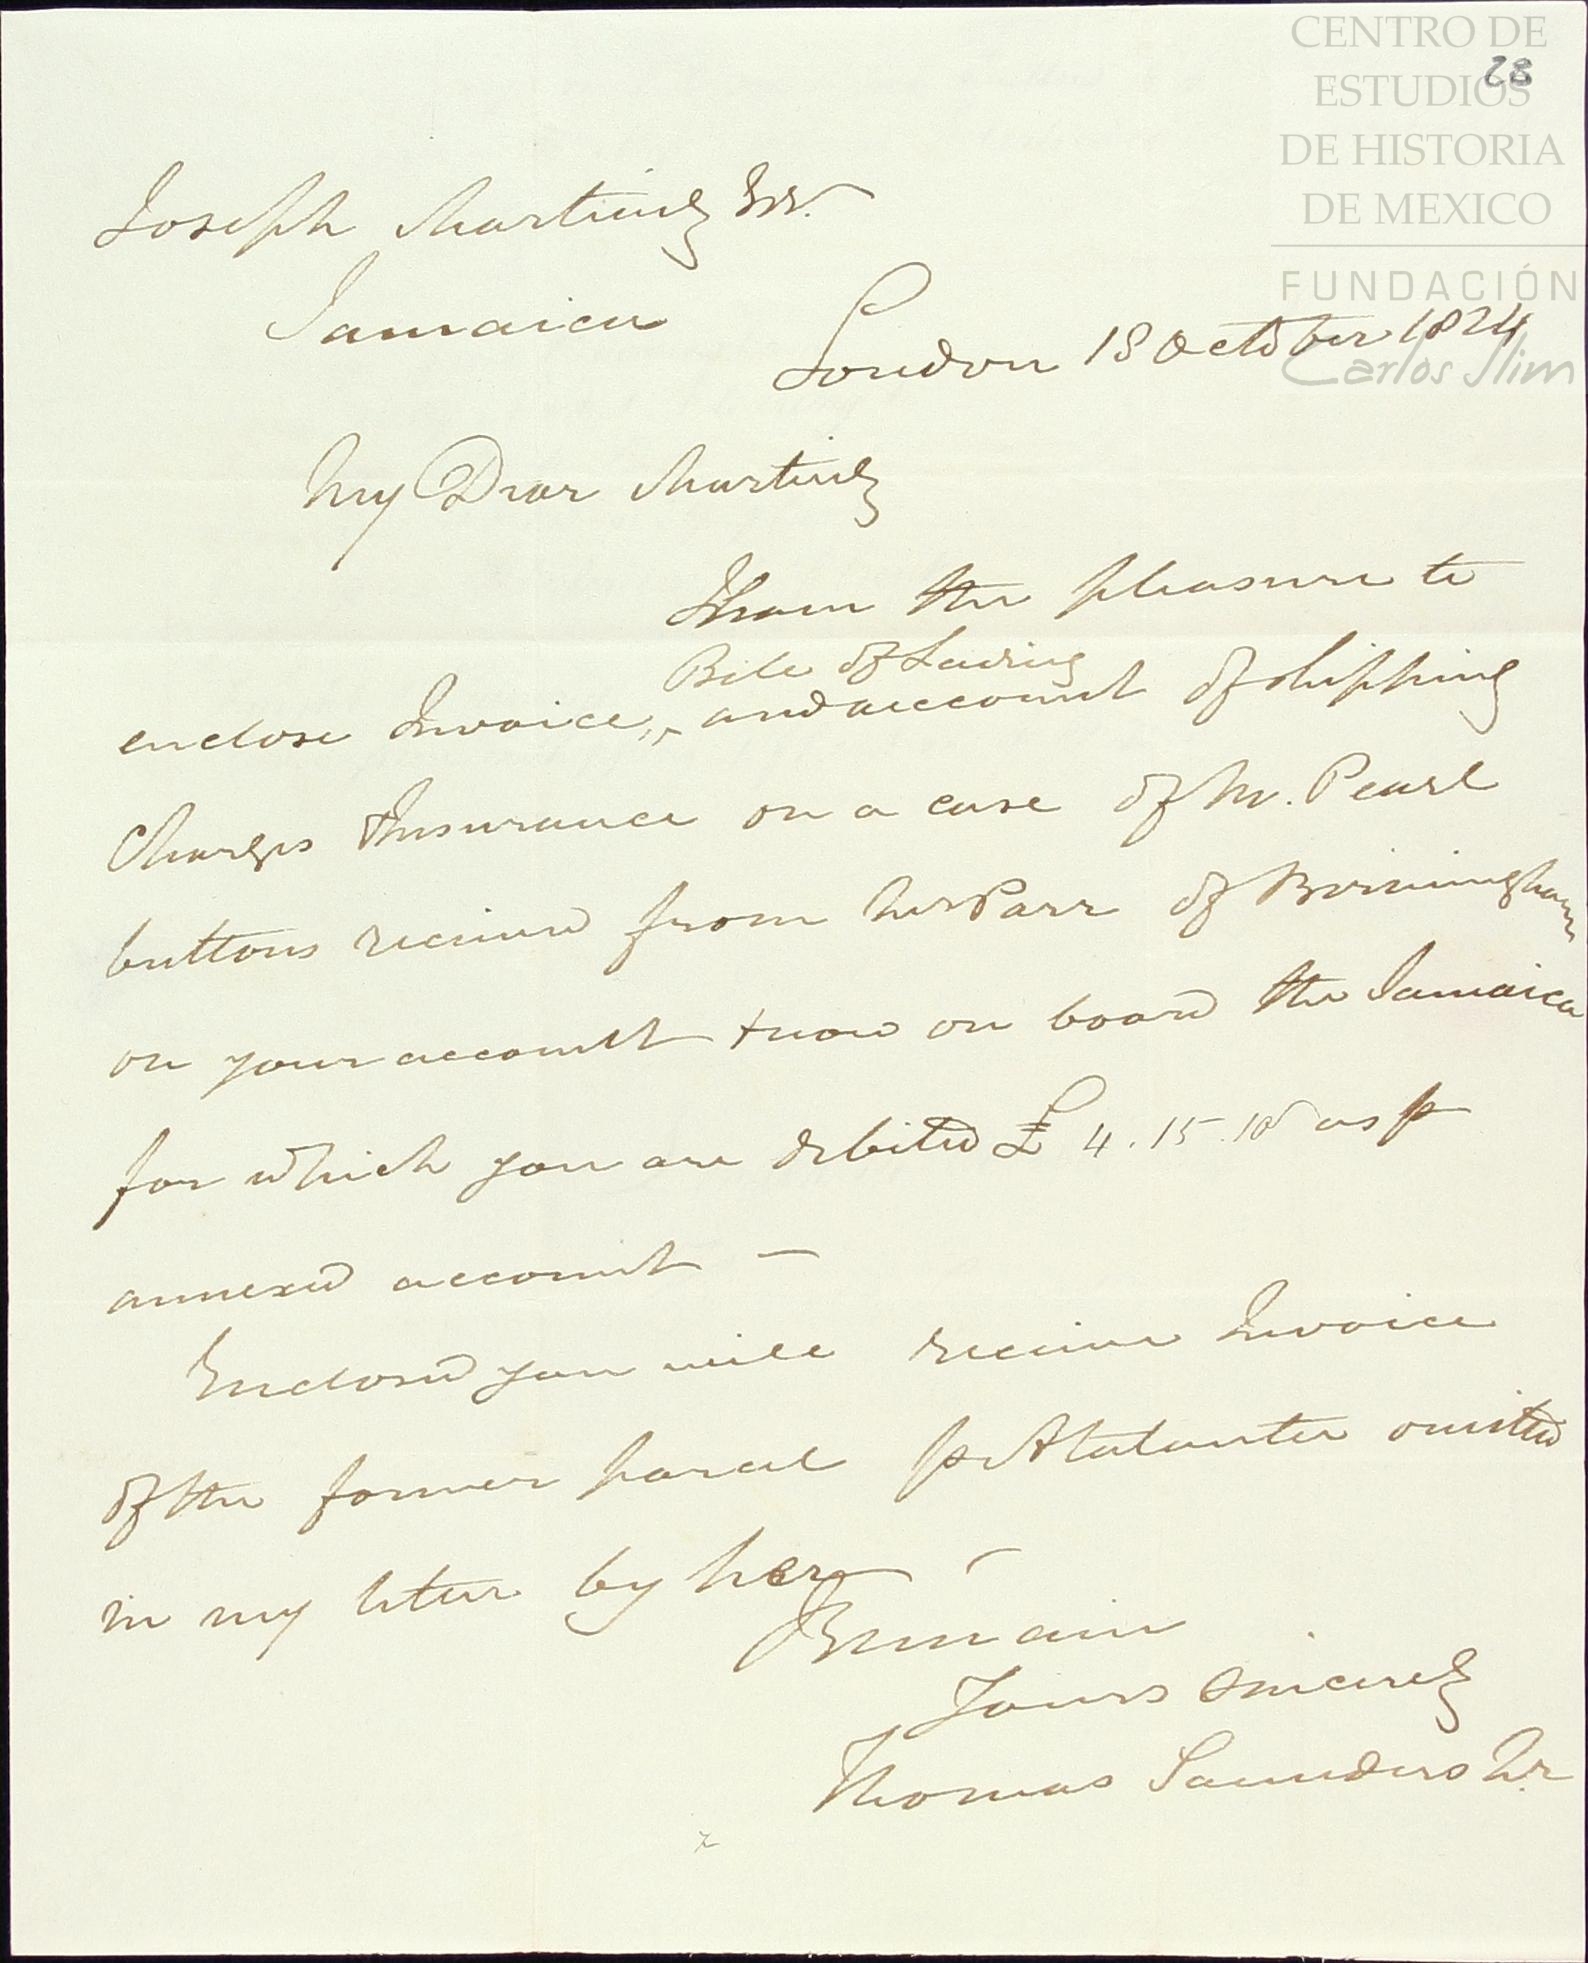 CENTRO DE
ESTUDIOS
DE HISTORIA
DE MEXICO
FUNDACIÓN
Carlos Slim
28
Joseph Martinez Esqr.
Jamaica
London 18 October 1824
My Dear Martinez
I have the pleasure to
Bill of Lading
enclose Invoice,, ^ and account of shipping
Charges & Insurance on a case of M. Pearl
buttons received from Mr Parr of Birmingham
on your account & now on board the Jamaica
for which you are debited £ 4.15.10 as p
annexed account —
Enclosed you will receive Invoice
of the former parcel pr Atalanta omitted
in my letter by her —
I Remain
Yours Sincerely
Thomas Saunders Jr